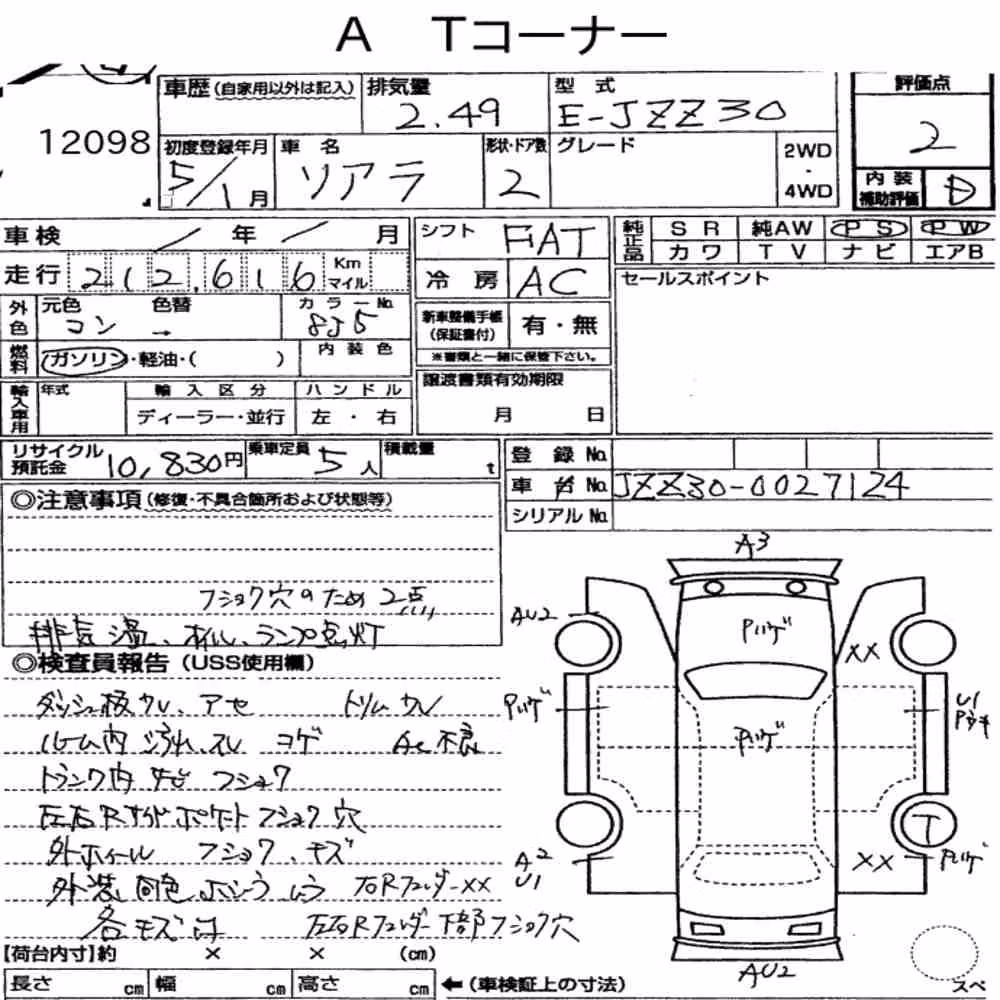 A Tコーナー
12098
車歴(自家用以外は記入) 排気量 型式 評価点
2.49 E-JZZ30 2
初度登録年月 車名 形状・ドア数 グレード 2WD・4WD
5/1月 ソアラ 2
内装補助評価 D
車検 / 年 / 月 シフト FIAT 純正品 SR 純AW PS PW
カワ TV ナビ エアB
走行 212,616 Km マイル 冷房 AC セールスポイント
外色 元色 色替 カラーNo.
コン → 8J5
新車整備手帳(保証書付) 有・無
※書類と一緒に保管下さい。
燃料 ガソリン・軽油・( ) 内装色
輸入車用 年式 輸入区分 ハンドル 譲渡書類有効期限
ディーラー・並行 左・右 月 日
リサイクル預託金 10,830円 乗車定員 5人 積載量 t 登録No.
車台No. JZZ30-0027124
シリアルNo.
◎注意事項(修復・不具合箇所および状態等)
フショク穴のため2点
排気温、オイル、ランプ点灯
◎検査員報告(USS使用欄)
ダッシュ板ワレ、アセ トリムワレ
ルーム内 汚れ、スレ コゲ AC不良
トランク内 サビ フショク
左右Rサイドポケットフショク穴
外ホイール フショク、キズ
外装 同色 右Rフェンダーxx
各キズ凹 左右Rフェンダー下部フショク穴
【荷台内寸】約 × × (cm)
長さ cm 幅 cm 高さ cm ←(車検証上の寸法)
A3
AU2
Pハゲ
XX
Pハゲ
U1
Pハゲ
T
A2
U1
XX
Pハゲ
AU2
スペ